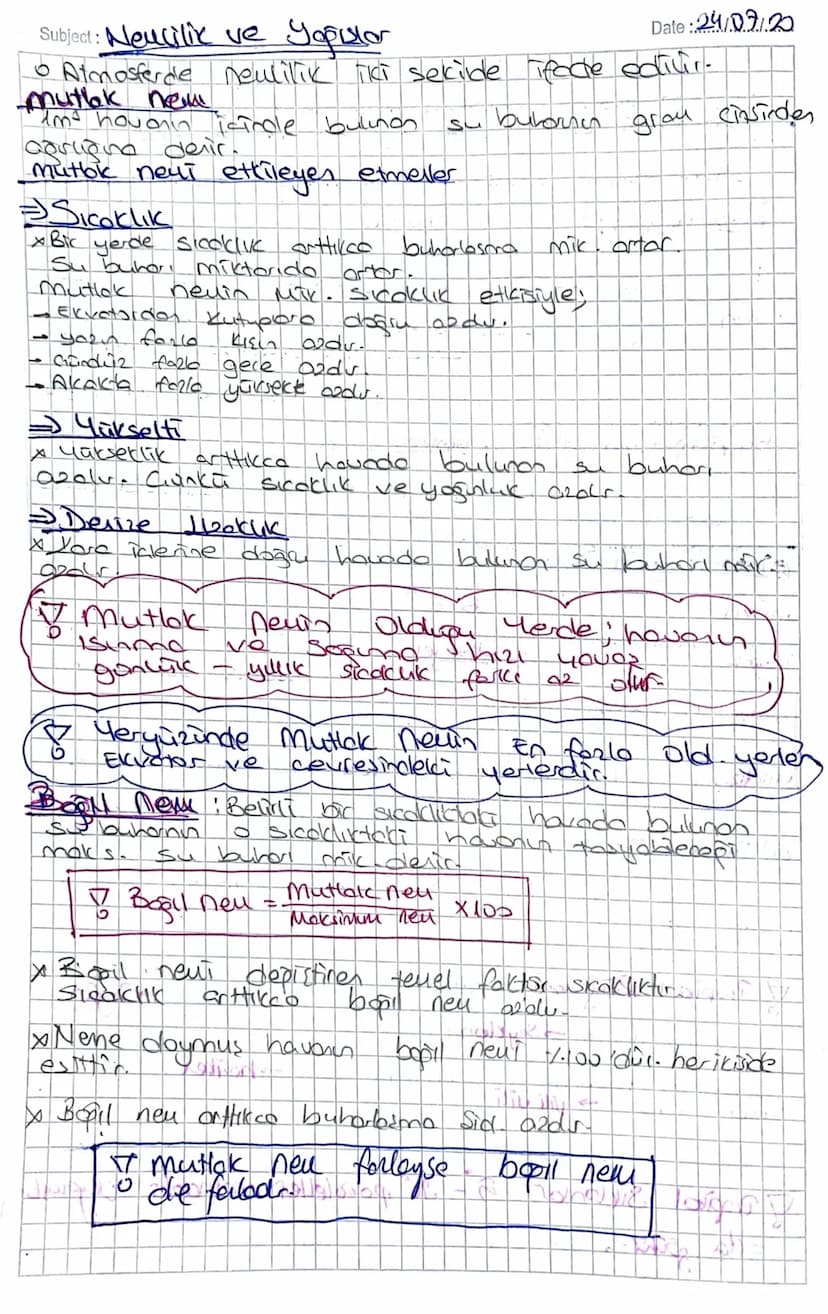 Subject: Nemlilik ve Yağışlar
Date: 24/09/20
o Atmosferde nemlilik iki şekilde ifade edilir.
mutlak nem
1m³ havanın içinde bulunan su buharının gram cinsinden
ağırlığına denir.
mutlak nemi etkileyen etmenler
⇒ Sıcaklık
x Bir yerde sıcaklık arttıkca buharlaşma mik. artar.
Su buharı miktarıda artar.
Mutlak nemin Mik. sıcaklık etkisiyle;
→ Ekvatordan kutuplara doğru azdır.
→ yazın fazla kışın azdır.
→ Gündüz fazla gece azdır.
→ Alcakta fazla yüksekte azdır.
⇒ Yükselti
x Yükseklik arttıkca havada bulunan su buharı
azalır. Çünkü sıcaklık ve yoğunluk azalır.
⇒ Denize Uzaklık
x Kara içlerine doğru havada bulunan su buharı mik.
azalır.
Mutlak nemin Olduğu Yerde; havanın
ısınma ve soğuma hızı yavaş
günlük - yıllık sıcaklık farkı az olur.
Yeryüzünde Mutlak Nemin En fazla Old. yerler
Ekvator ve cevresindeki yerlerdir.
Bağıl Nem : Belirli bir sıcaklıktaki havada bulunan
su buharının o sıcaklıktaki havanın taşıyabileceği
maks. su buharı mik. denir.
Bağıl nem = Mutlak nem / Maksimum nem x100
x Bağıl nemi değiştiren temel faktör sıcaklıktır.
Sıcaklık arttıkca bağıl nem azalır.
x Neme doymuş havanın bağıl nemi %100'dür. herikiside
eşittir.
x Bağıl nem arttıkca buharlaşma Şid. azdır.
mutlak nem fazlaysa bağıl nem
de fazladır.